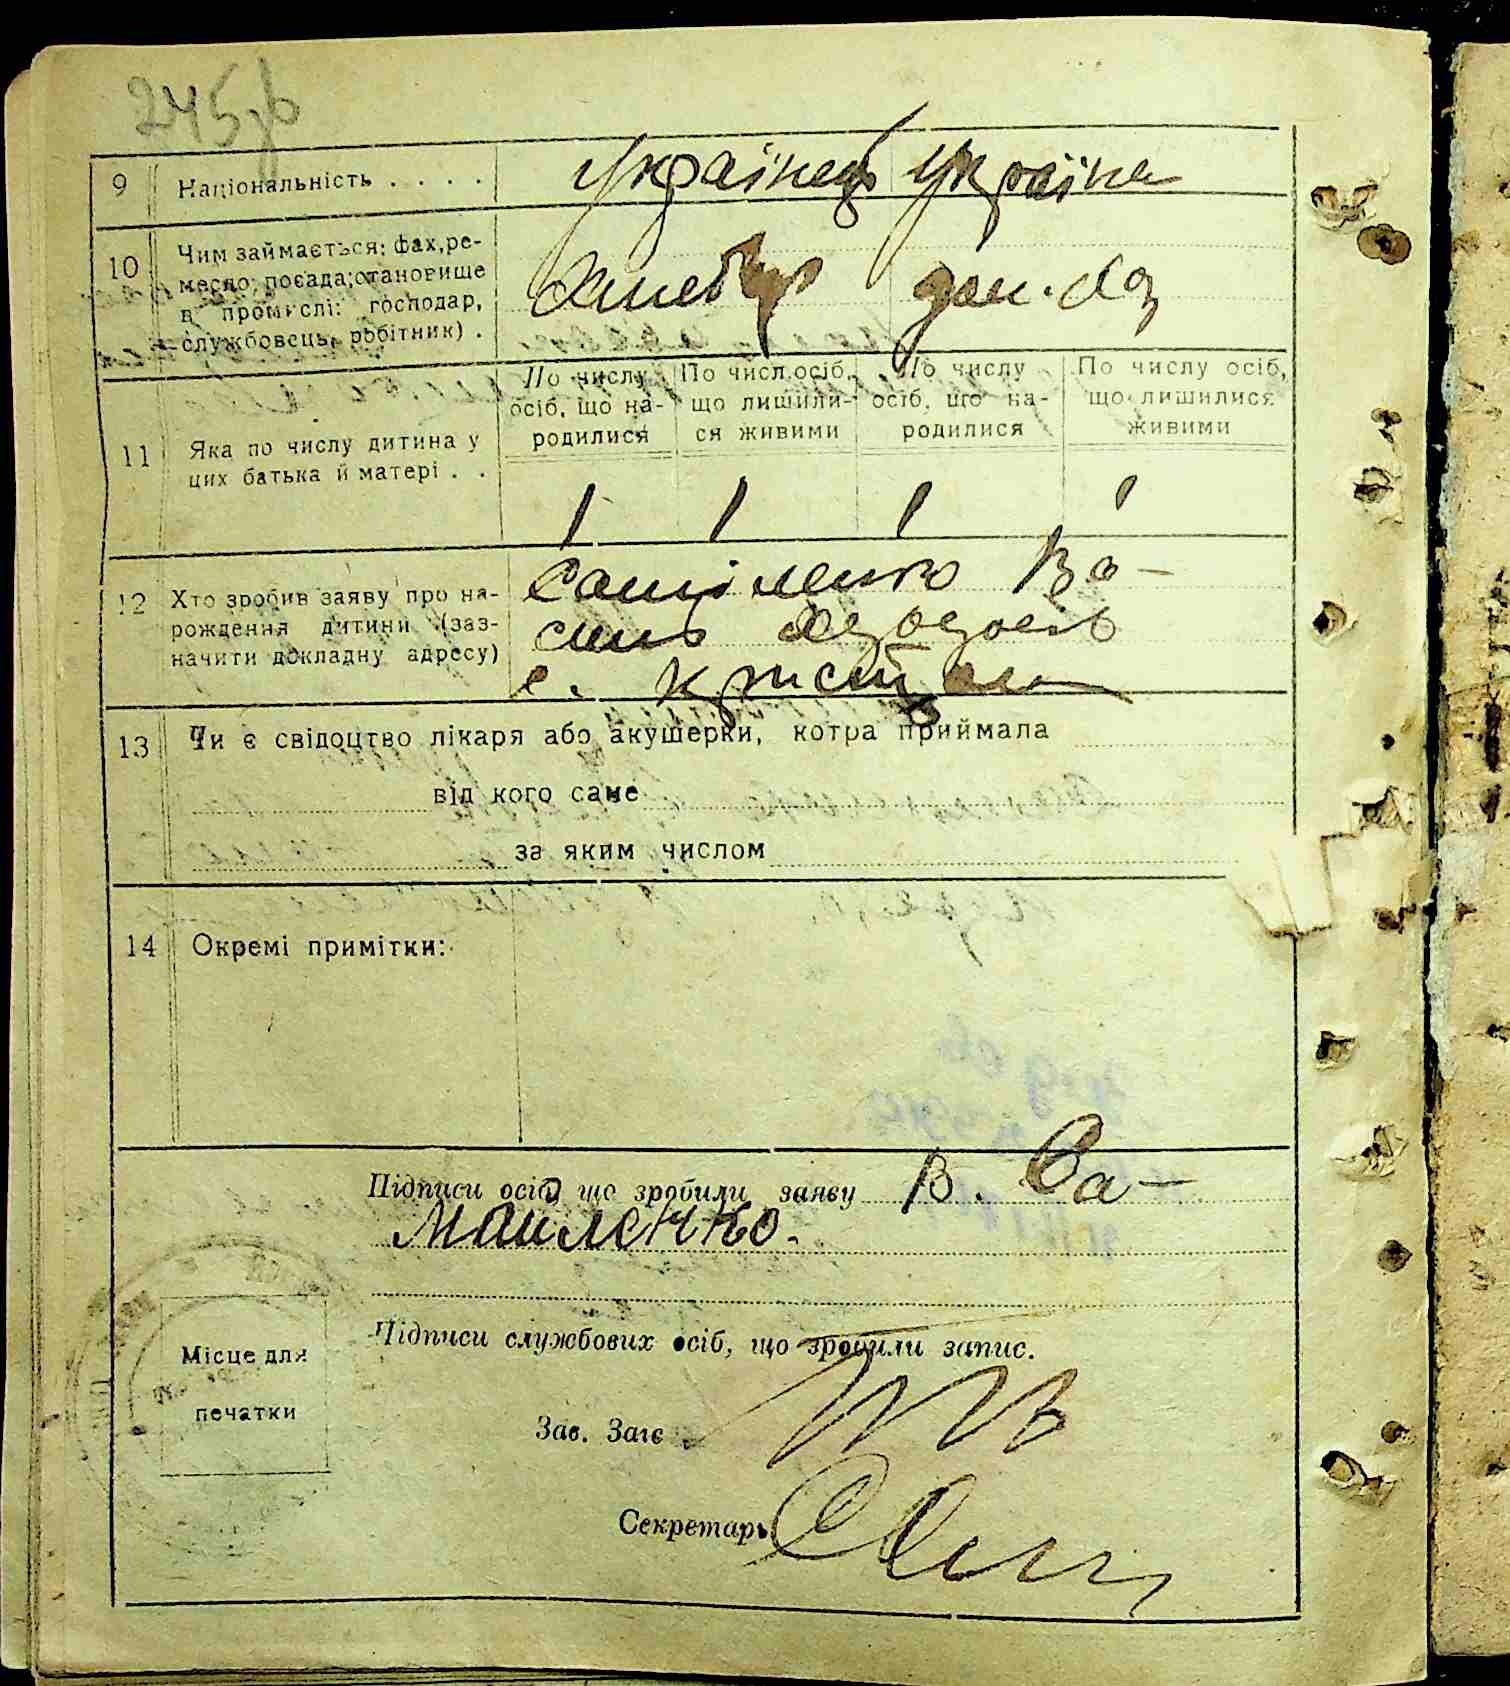 9 Національність . . . . Українець Україна
10 Чим займається: фах, ре-
месло; посада; становище
в промислі: господар,
службовець, робітник) .
дом.
11 Яка по числу дитина у
цих батька й матері . .
По числу осіб, що на-родилися
По числ. осіб, що лишили-ся живими
По числу осіб, що на-родилися
По числу осіб, що лишилися живими
1 1 1 1
12 Хто зробив заяву про на-
рождення дитини (заз-
начити докладну адресу)
Самійленко Ва-
силь
с.
13 Чи є свідоцтво лікаря або акушерки, котра приймала
від кого саме
за яким числом
14 Окремі примітки:
Підписи осіб що зробили заяву В. Са-
мійленко.
Підписи службових осіб, що зробили запис.
Місце для
печатки
Зав. Загс
Секретарь